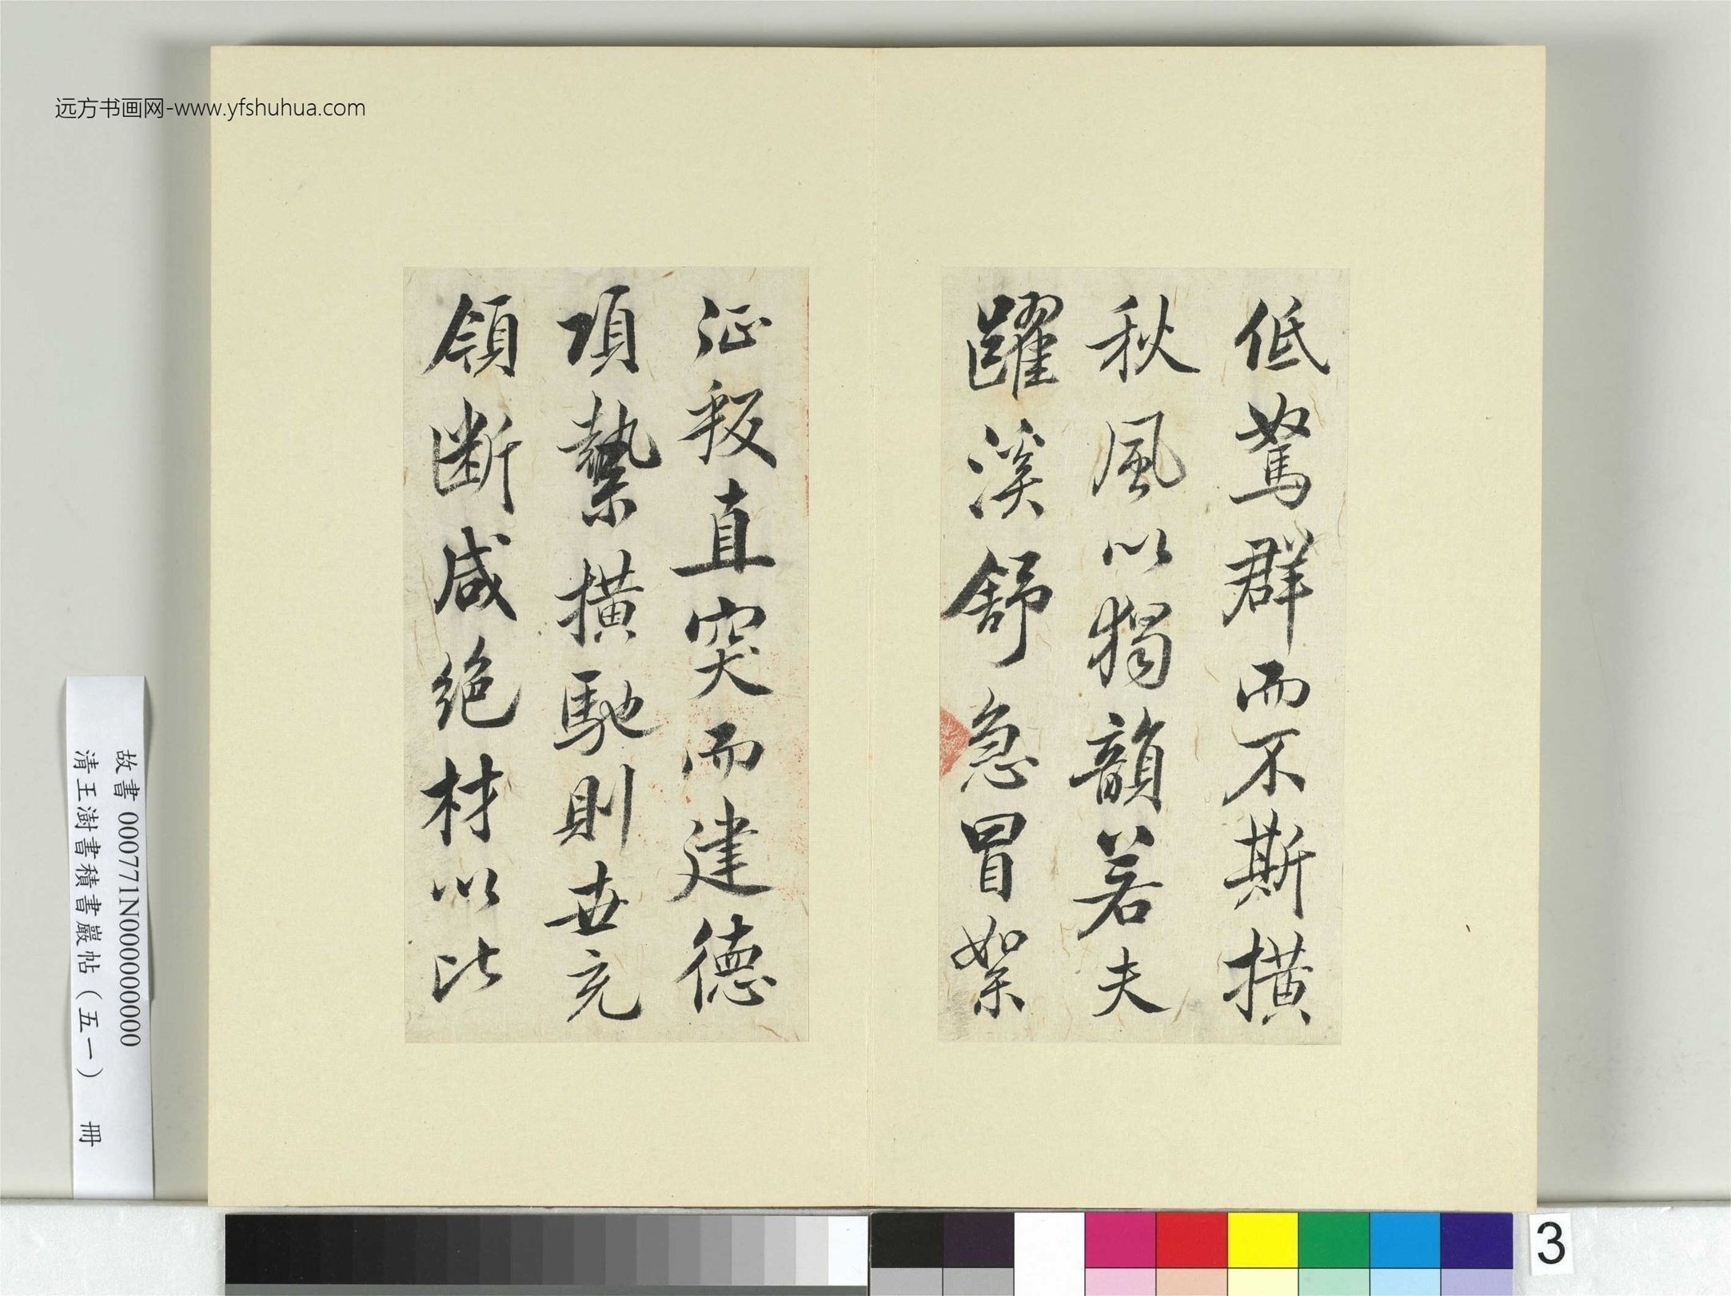 远方书画网-www.yfshuhua.com
低駑群而不斯橫
秋風以獨韻若夫
躍溪舒急冒絮
征叛直突而建德
項縶橫馳則世充
領斷咸絕材以比
故書 000771N000000000
清王澍書積書巖帖(五一) 冊
3